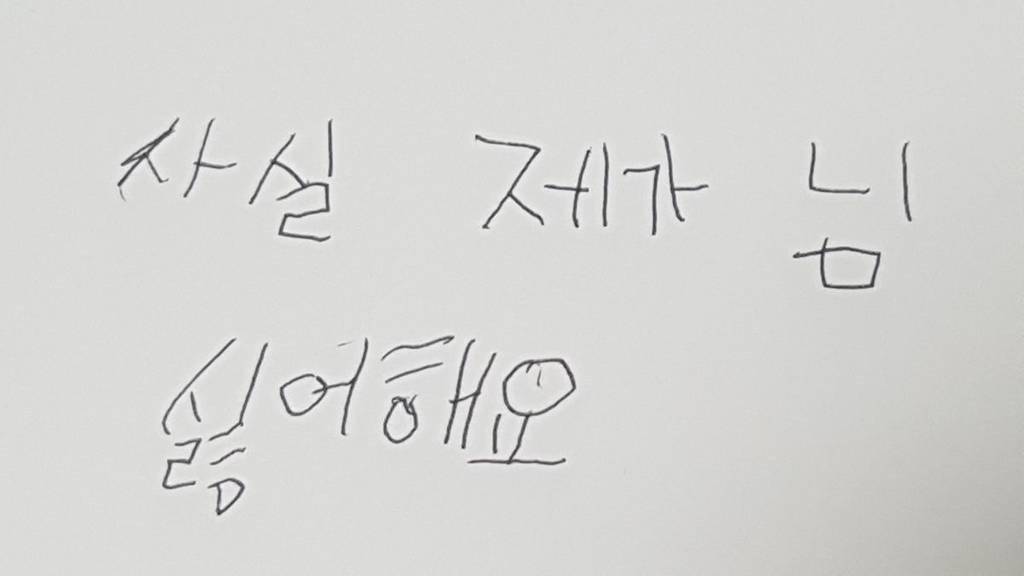 사실 제가 님
싫어해요